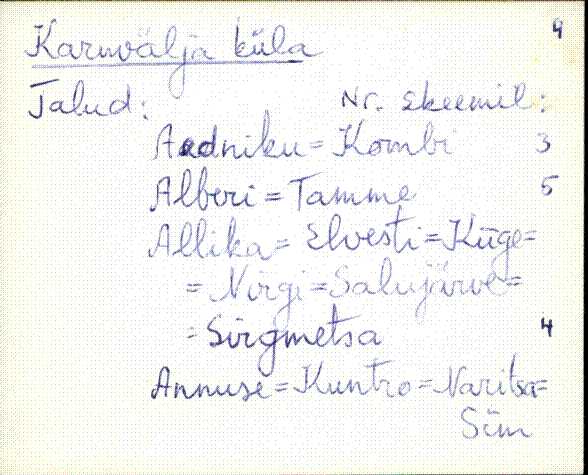 4
Karuvälja küla
Talud: Nr. skeemil:
Aedniku = Kombi 3
Alberi = Tamme 5
Allika = Elvesti = Küge =
= Nirgi = Salujärve =
= Sirgmetsa 4
Annuse = Kuntro = Naritsa =
Sim